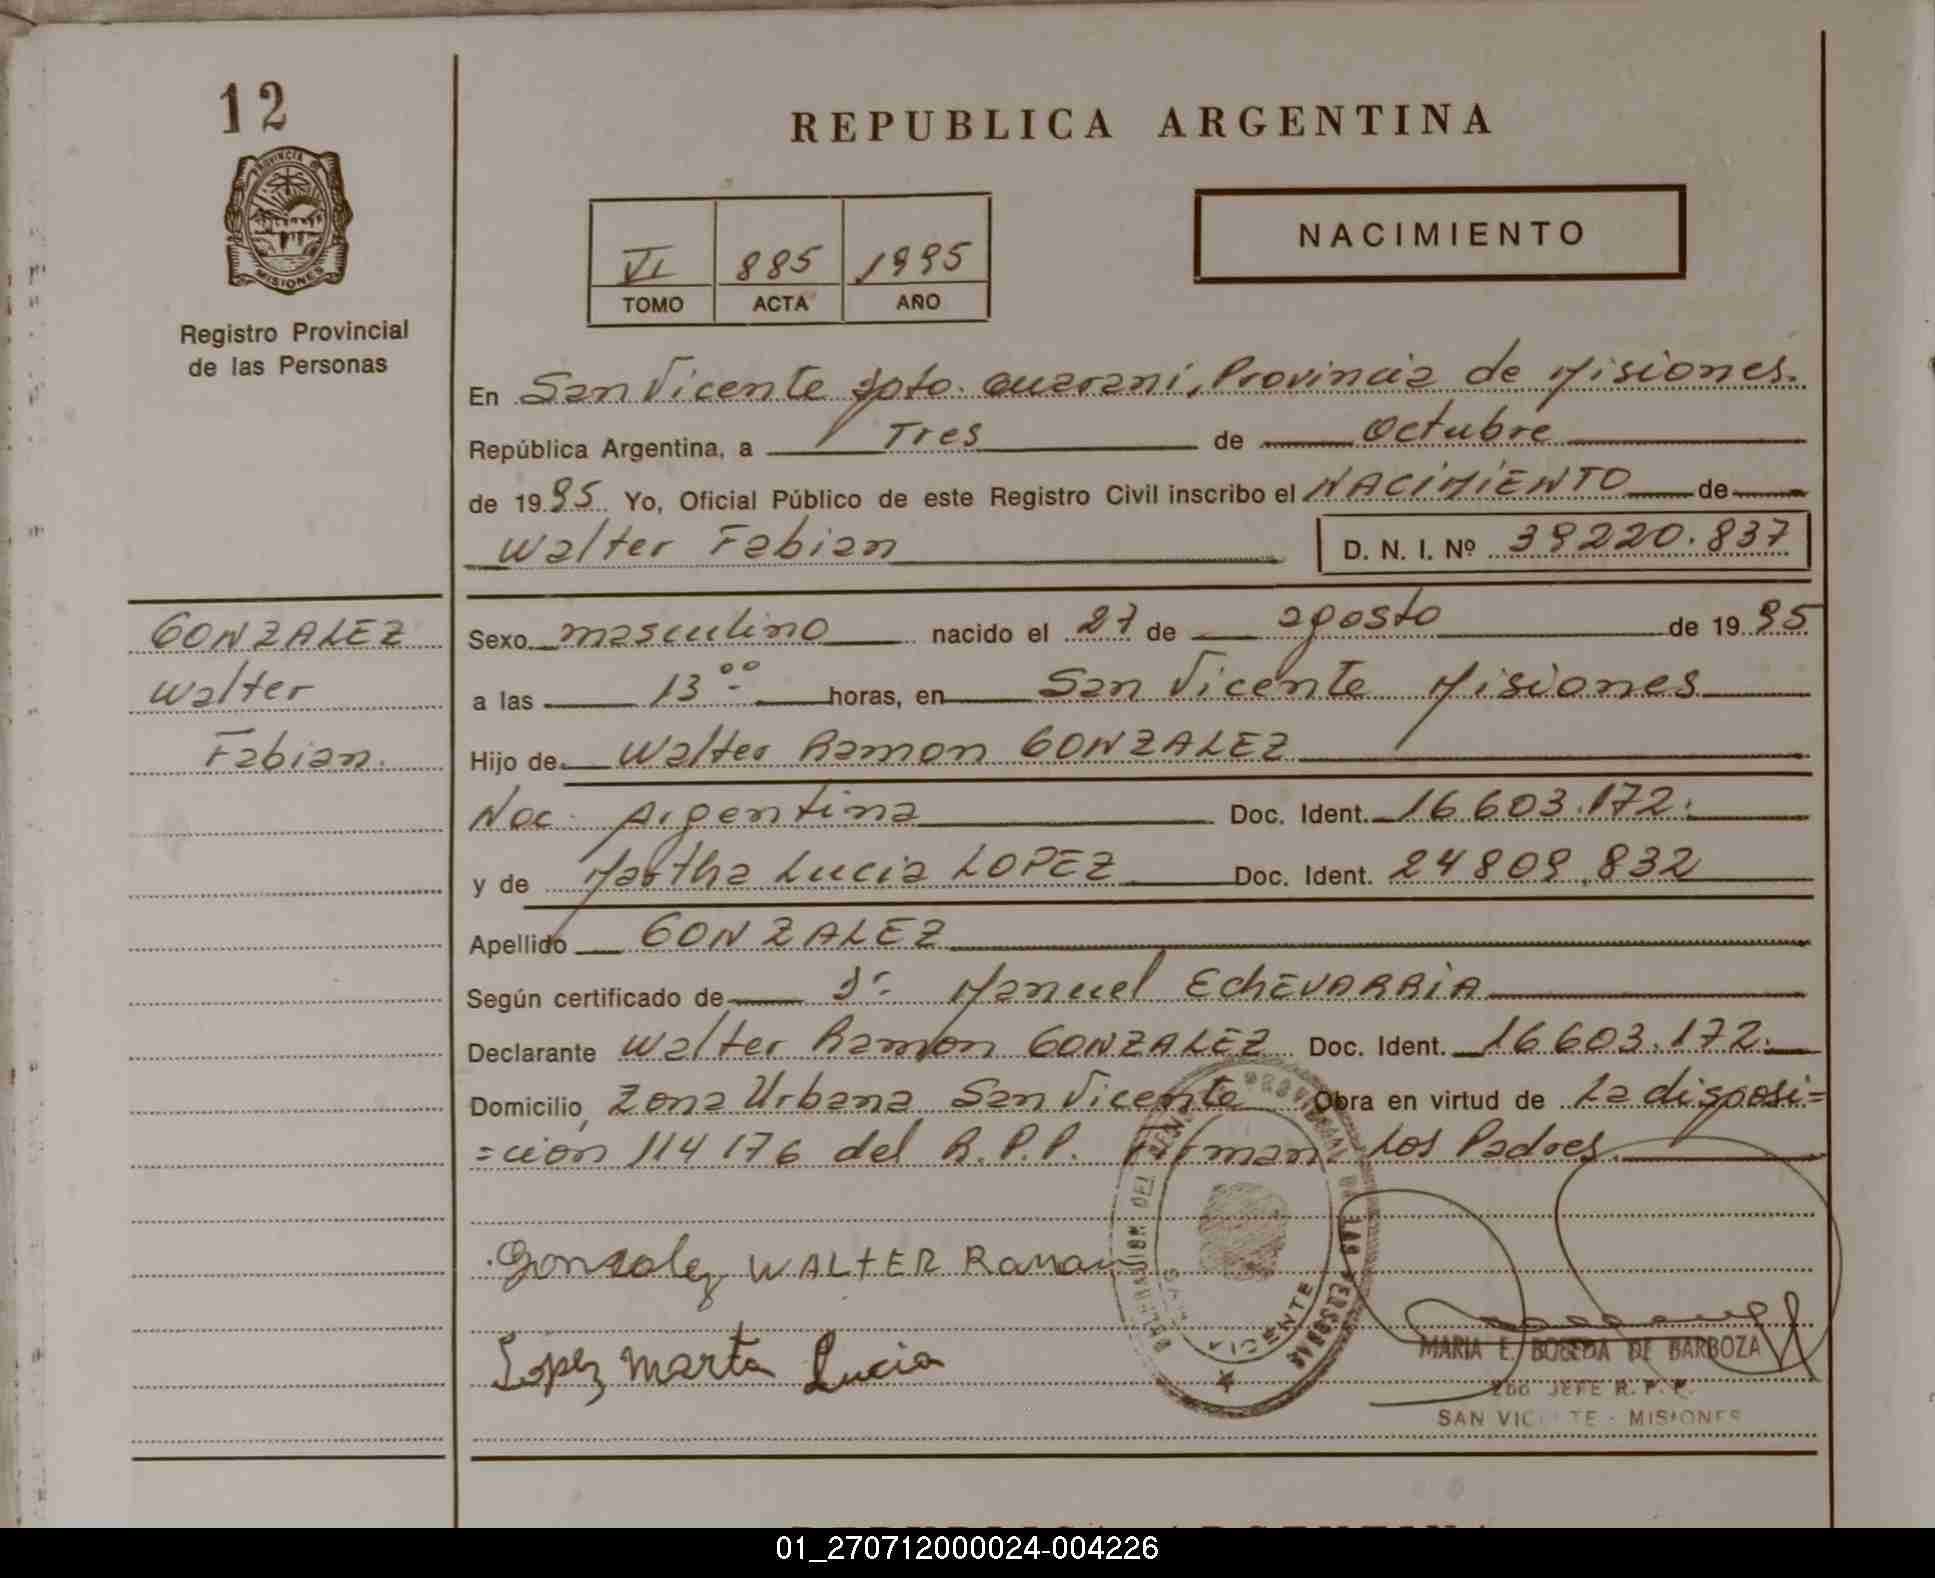 12
PROVINCIA DE
MISIONES
Registro Provincial
de las Personas
REPUBLICA ARGENTINA
VI 885 1995
TOMO ACTA AÑO
NACIMIENTO
En San Vicente Dpto. Guarani, Provincia de Misiones.
República Argentina, a Tres de Octubre
de 1995 Yo, Oficial Público de este Registro Civil inscribo el NACIMIENTO de
Walter Fabian D. N. I. Nº 39220.837
GONZALEZ
Walter
Fabian.
Sexo masculino nacido el 27 de agosto de 1995
a las 13 00 horas, en San Vicente Misiones
Hijo de Walter Ramon GONZALEZ
Nac. Argentina Doc. Ident. 16.603.172.
y de Martha Lucia LOPEZ Doc. Ident. 24809.832
Apellido GONZALEZ
Según certificado de Dr. Manuel EChEVARRiA
Declarante Walter Ramon GONZALEZ Doc. Ident. 16.603.172.
Domicilio Zona Urbana San Vicente Obra en virtud de La disposi=
=cion 114176 del R.P.P. Firman Los Padres.
Gonzalez WALTER Ramon
Lopez Marta Lucia
VICENTE
MARIA E. BOBEDA DE BARBOZA
JEFE R. P. P.
SAN VICENTE - MISIONES
REPUBLICA ARGENTINA
01_270712000024-004226